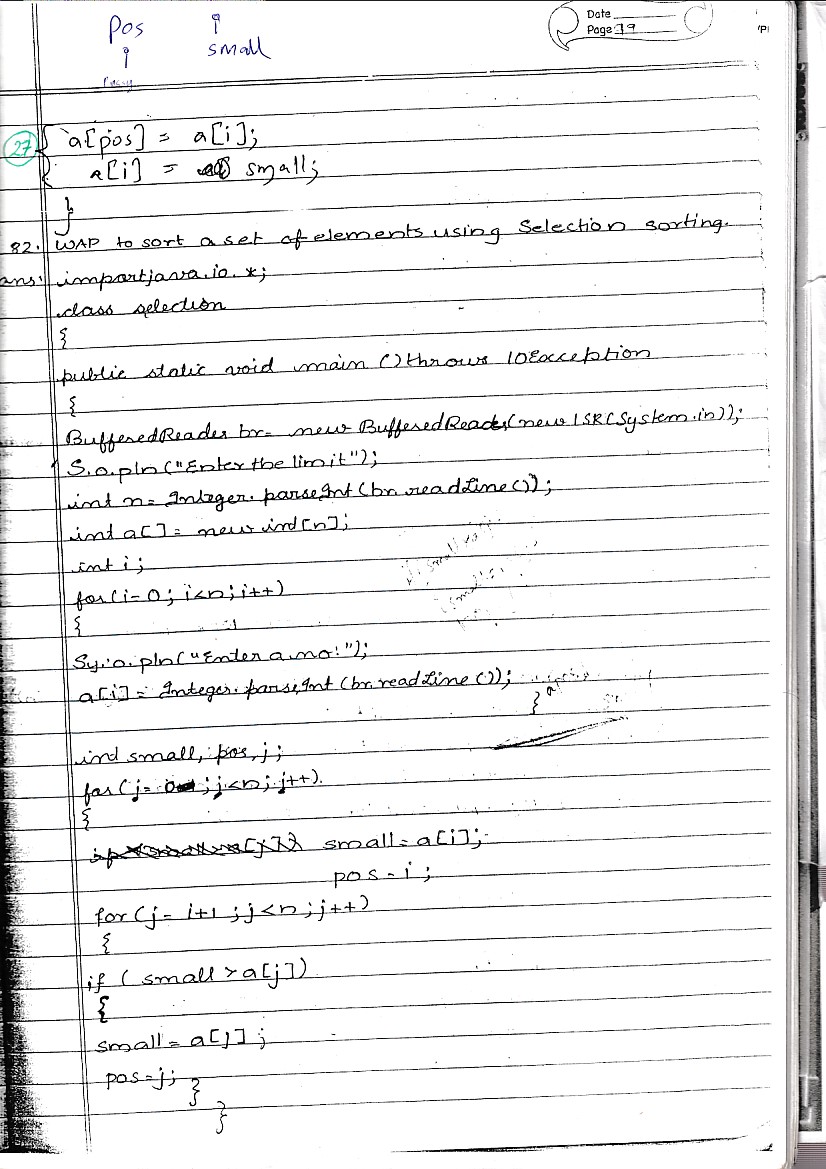 Pos
small
Date
Page 79
27
a[pos] = a[i];
a[i] = small;
}
82. WAP to sort a set of elements using Selection sorting.
ans: import java.io.*;
class selection
{
public static void main () throws IOException
{
BufferedReader br= new BufferedReader(new ISR(System.in));
S.o.pln("Enter the limit");
int n= Integer.parseInt(br.readLine());
int a[]= new int[n];
int i;
for(i=0; i<n; i++)
{
Sy.o.pln("Enter a no:");
a[i]= Integer.parseInt(br.readLine());
}
int small, pos, j;
for(j= 0 ; j<n; j++)
{
small=a[i];
pos=i;
for(j= i+1 ; j<n; j++)
{
if (small > a[j])
{
small= a[j];
pos=j; }
}